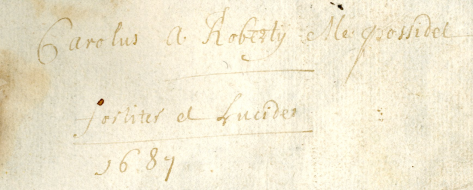 Carolus A Roberty Me possidet
fortiter et Lucide
1687